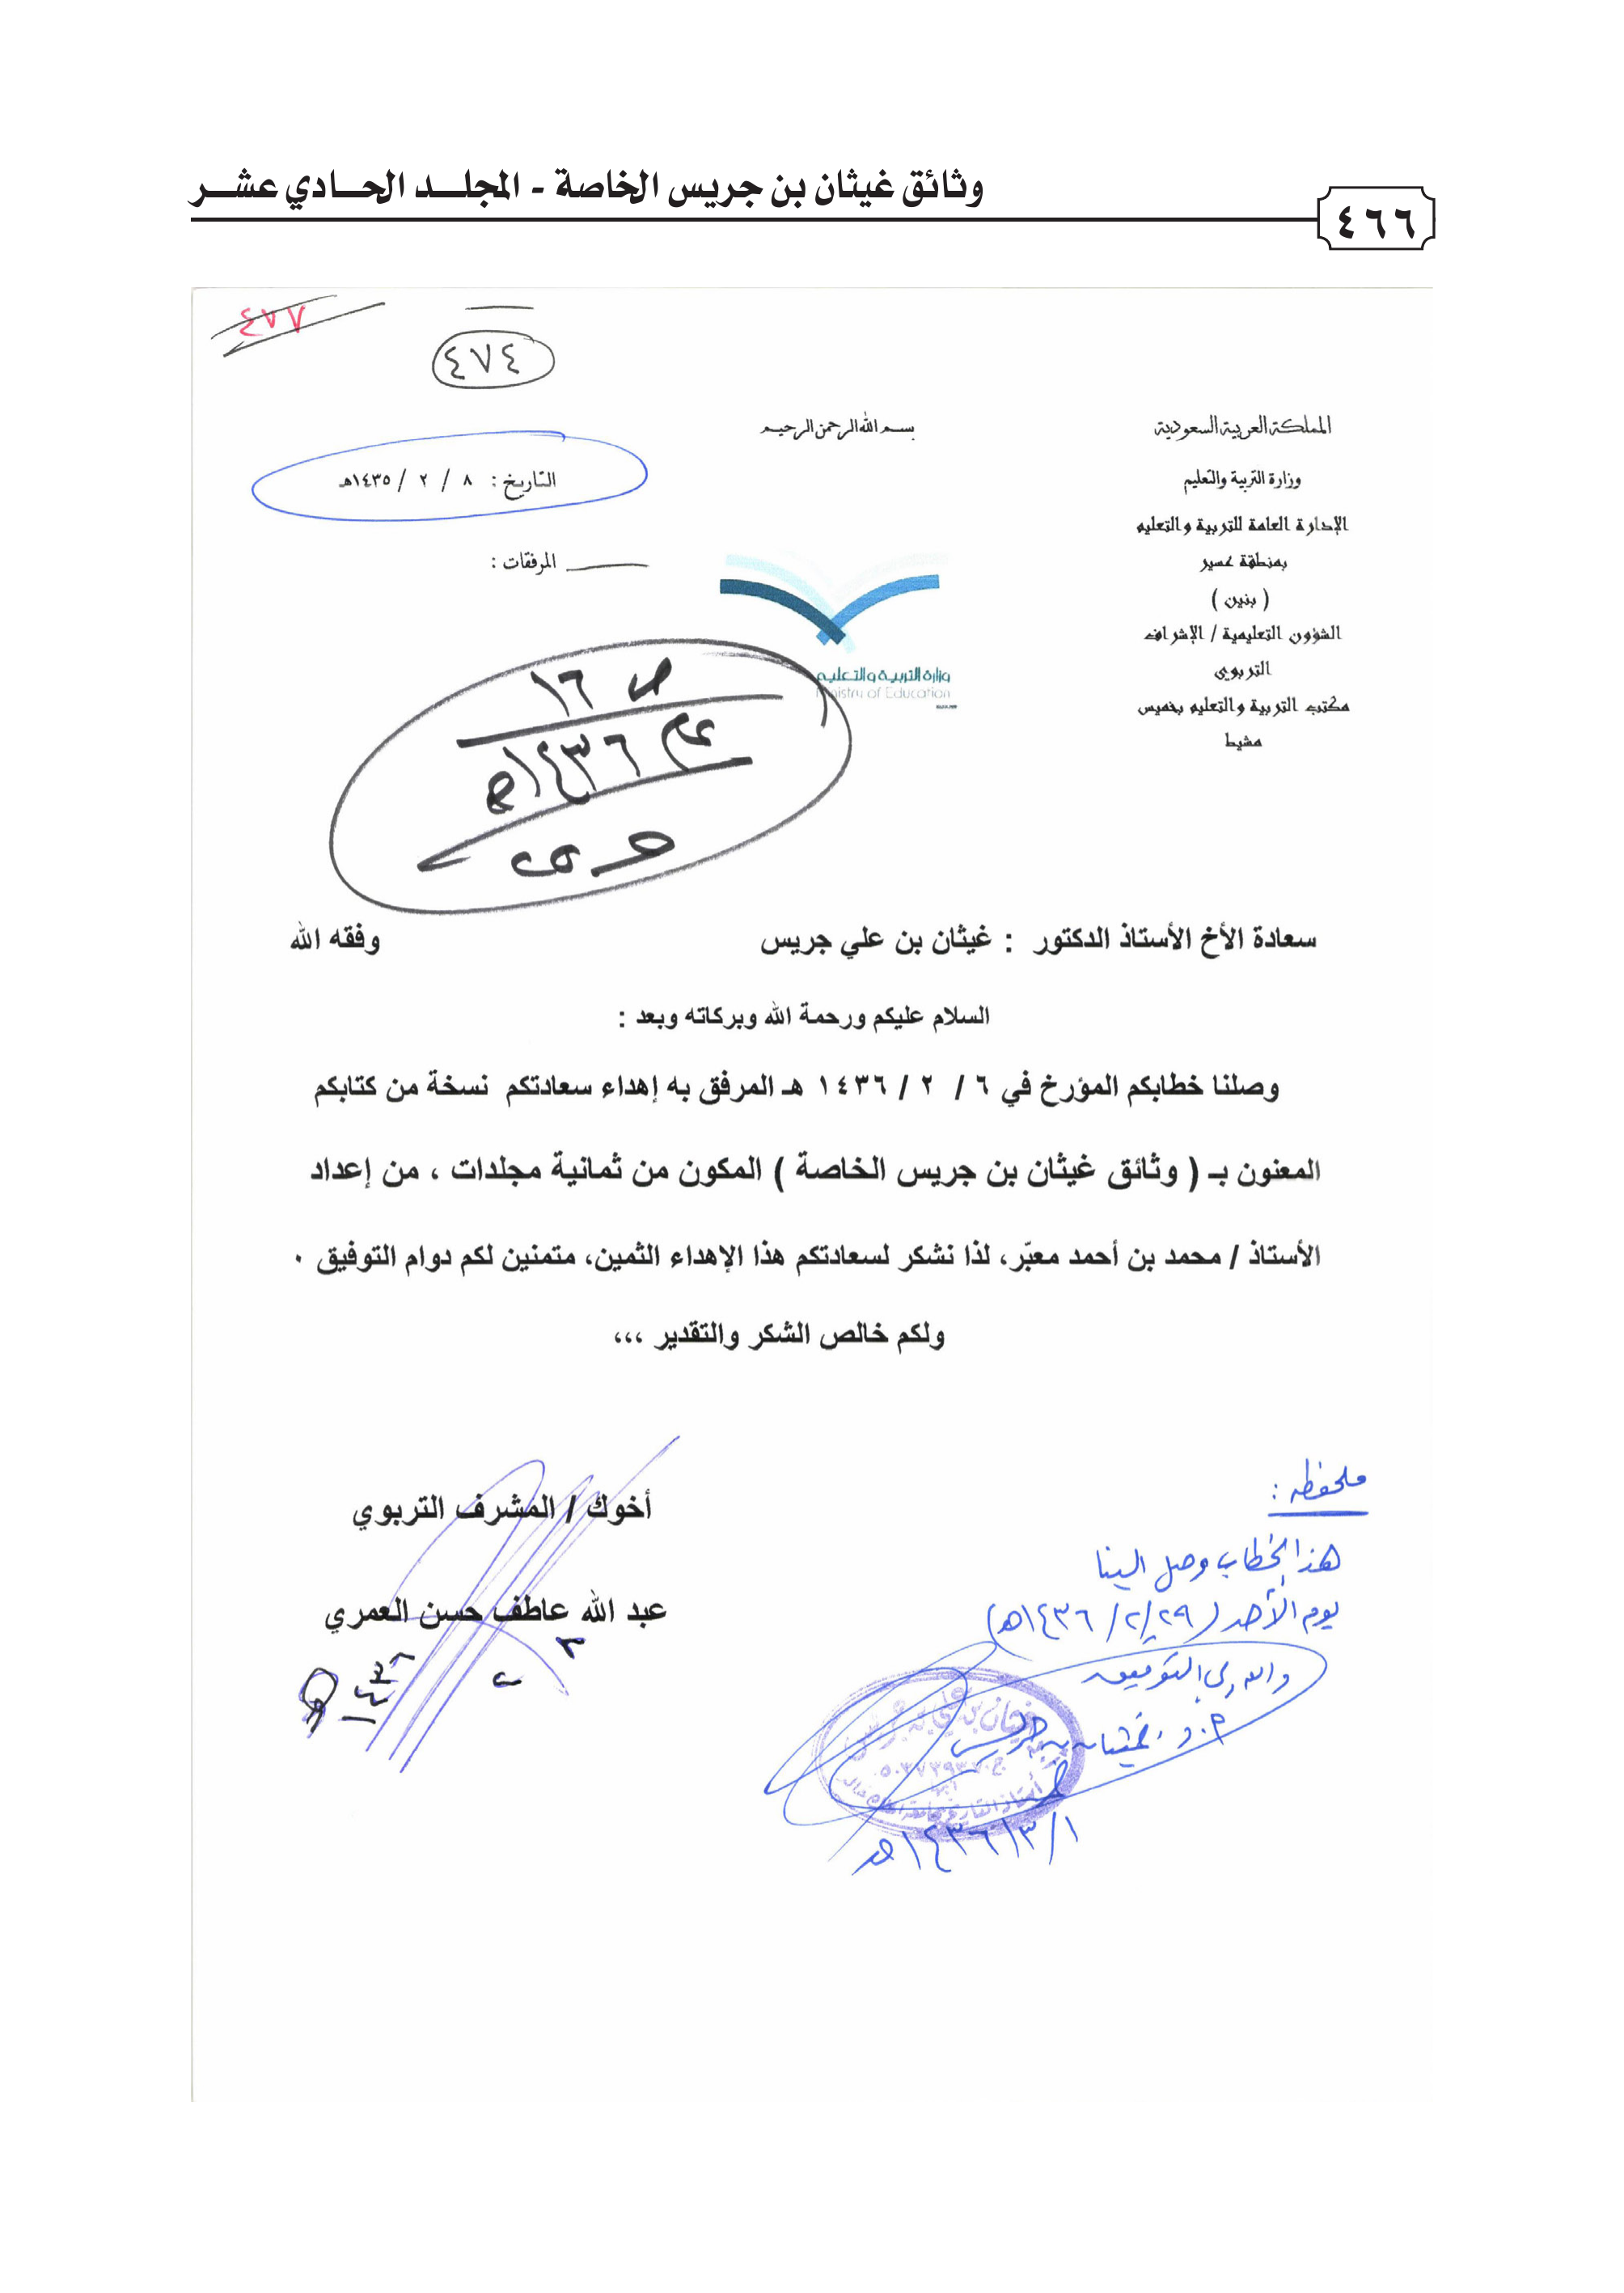 وثائق غيثان بن جريس الخاصة - المجلد الحادي عشر
٤٦٦
٤٧٧
٤٧٤
المملكة العربية السعودية
وزارة التربية والتعليم
الإدارة العامة للتربية والتعليم
بمنطقة عسير
( بنين )
الشؤون التعليمية / الإشراف
التربوي
مكتب التربية والتعليم بخميس
مشيط
بسم الله الرحمن الرحيم
التاريخ : ٨ / ٢ / ١٤٣٥هـ
المرفقات :
وزارة التربية والتعليم
Ministry of Education
ص ١٦
عام ١٤٣٦هـ
سعادة الأخ الأستاذ الدكتور : غيثان بن علي جريس وفقه الله
السلام عليكم ورحمة الله وبركاته وبعد :
وصلنا خطابكم المؤرخ في ٦ / ٢ / ١٤٣٦ هـ المرفق به إهداء سعادتكم نسخة من كتابكم
المعنون بـ ( وثائق غيثان بن جريس الخاصة ) المكون من ثمانية مجلدات ، من إعداد
الأستاذ / محمد بن أحمد معبّر، لذا نشكر لسعادتكم هذا الإهداء الثمين، متمنين لكم دوام التوفيق ٠
ولكم خالص الشكر والتقدير ،،،
أخوك / المشرف التربوي
عبد الله عاطف حسن العمري
١٤٣٦
ملحظه :
هذا الخطاب وصل الينا
يوم الأحد (٢٩/٢/١٤٣٦هـ)
والله ولي التوفيق
أ.د. غيثان بن جريس
١/٣/١٤٣٦هـ